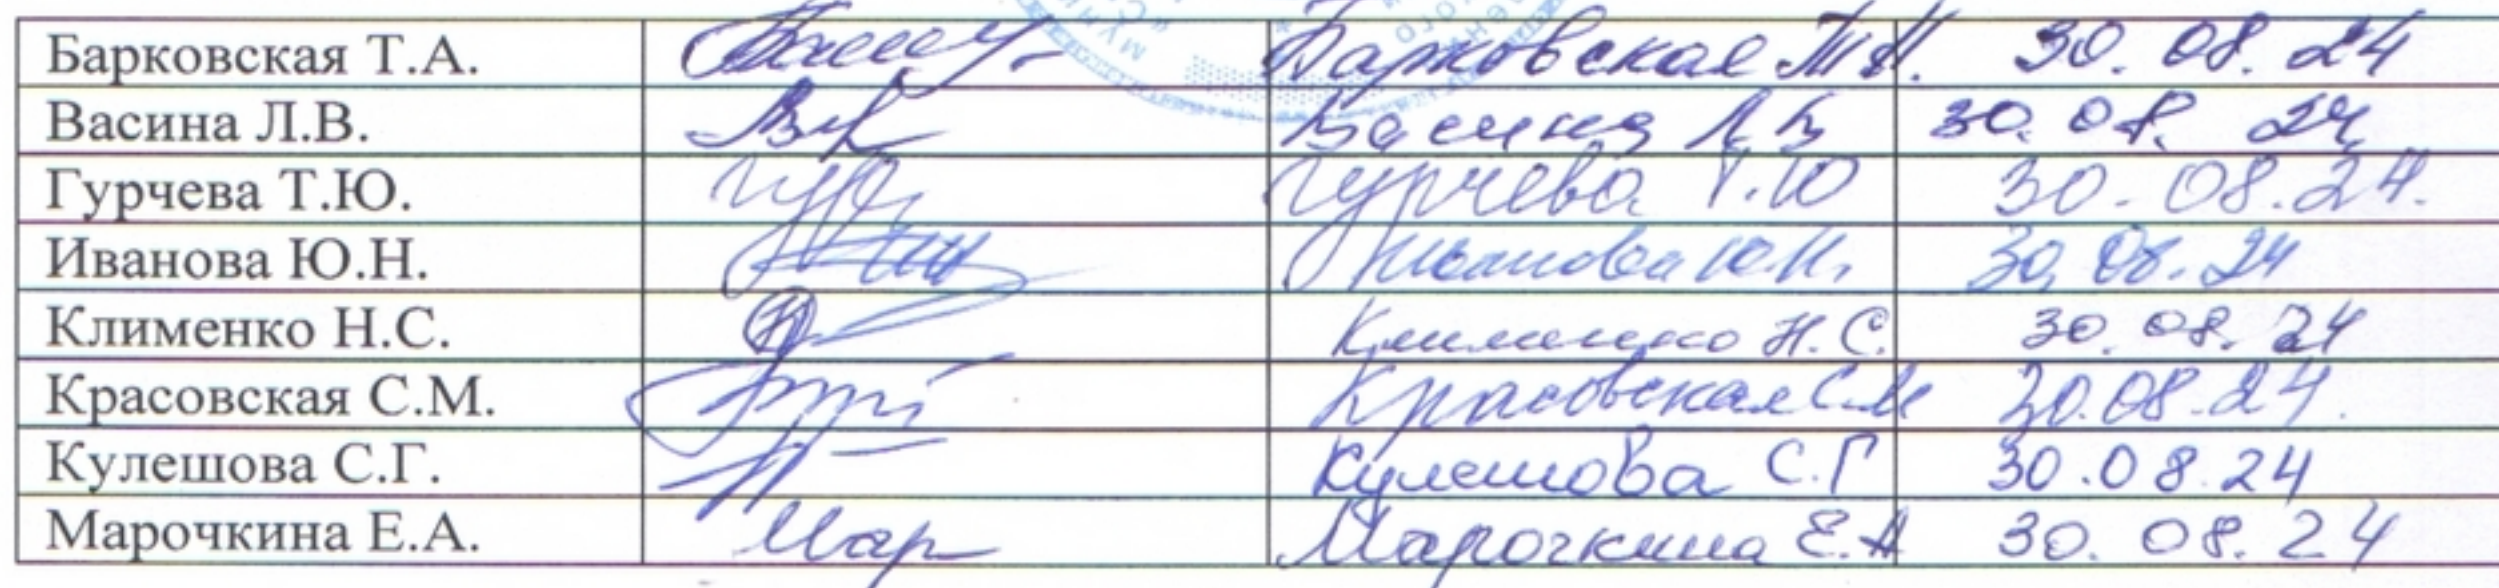 Барковская Т.А. Барковская Т.А. 30.08.24
Васина Л.В. Васина Л В 30.08.24
Гурчева Т.Ю. Гурчева Т.Ю 30.08.24.
Иванова Ю.Н. Иванова Ю.Н. 30.08.24
Клименко Н.С. Клименко Н.С. 30.08.24
Красовская С.М. Красовская С.М 30.08.24.
Кулешова С.Г. Кулешова С.Г 30.08.24
Марочкина Е.А. Мар Марочкина Е.А 30.08.24